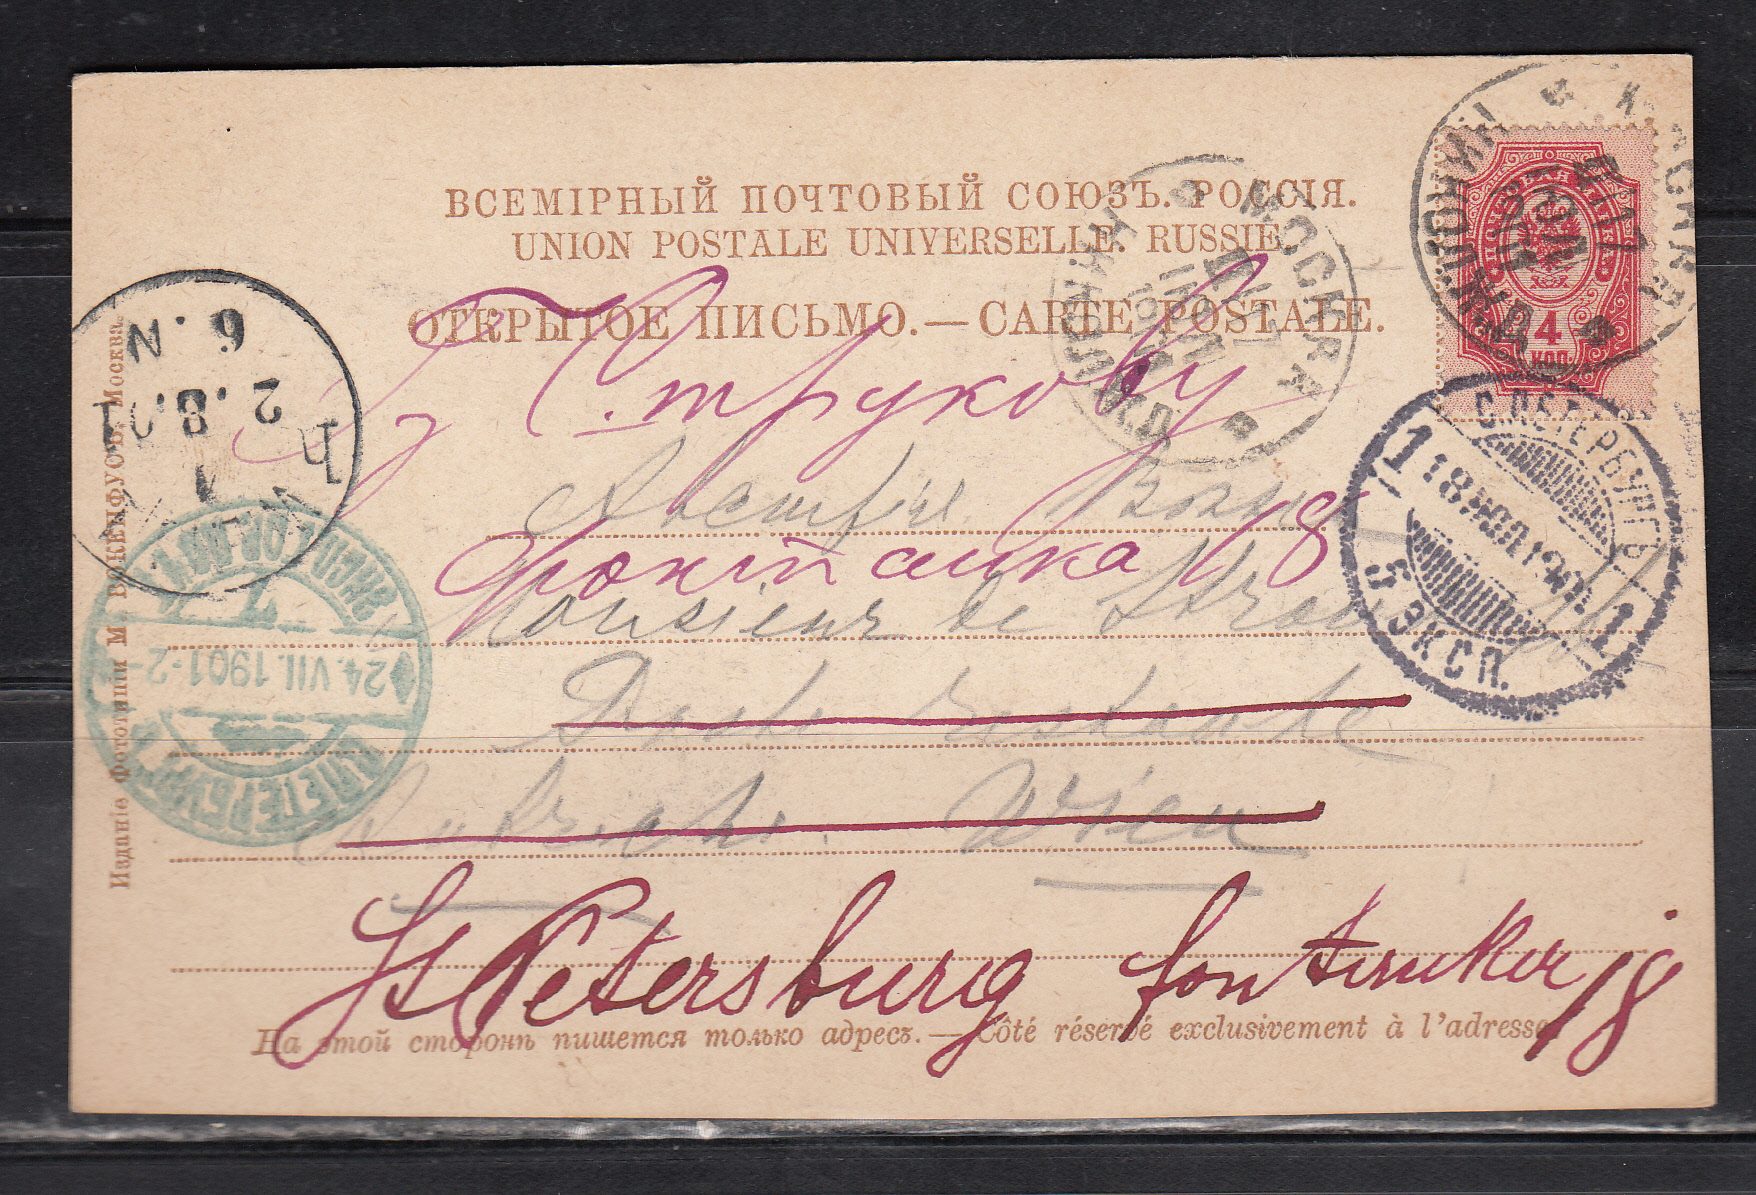 ВСЕМІРНЫЙ ПОЧТОВЫЙ СОЮЗЪ. РОССІЯ.
UNION POSTALE UNIVERSELLE. RUSSIE.
ОТКРЫТОЕ ПИСЬМО.—CARTE POSTALE.
Г. Струкову
Фонтанка 18
Monsieur de
Poste restante
Autriche. Wien
St Petersburg Fontanka 18
На этой сторонѣ пишется только адресъ. — Côté réservé exclusivement à l'adresse
Изданіе Фототипіи М. Москва.
4 КОП.
МОСКВА
С.ПЕТЕРБУРГЪ
1 18 1901 1
5 ЭКСП.
6.N
2.8.01
24.VII.1901-2-
С.ПЕТЕРБУРГЪ
7